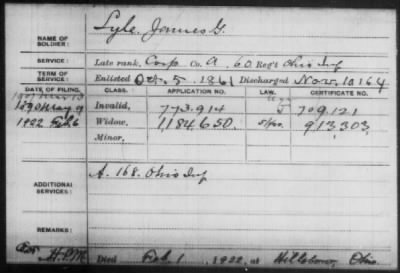 NAME OF SOLDIER: Lyle James G.
SERVICE: Late rank, Corp Co. A, 60 Reg't Ohio Inf
TERM OF SERVICE: Enlisted Oct. 5, 1861 Discharged Nov. 10 164
DATE OF FILING. CLASS. APPLICATION NO. LAW. CERTIFICATE NO.
1890 May 9 Invalid, 773.914 J 709.121
1922 Feb 6 Widow, 1184650. 913303
Minor,
ADDITIONAL SERVICES: A. 168. Ohio Inf
REMARKS:
Died Feb. 1, 1922, at Hillsboro, Ohio.